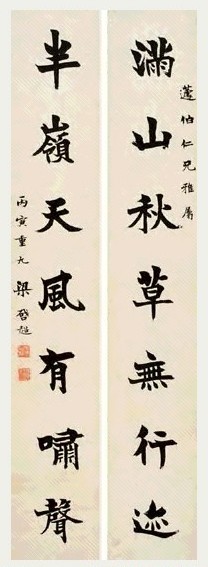 蘧伯仁兄雅屬
滿山秋草無行迹
半嶺天風有嘯聲
丙寅重九 梁啓超